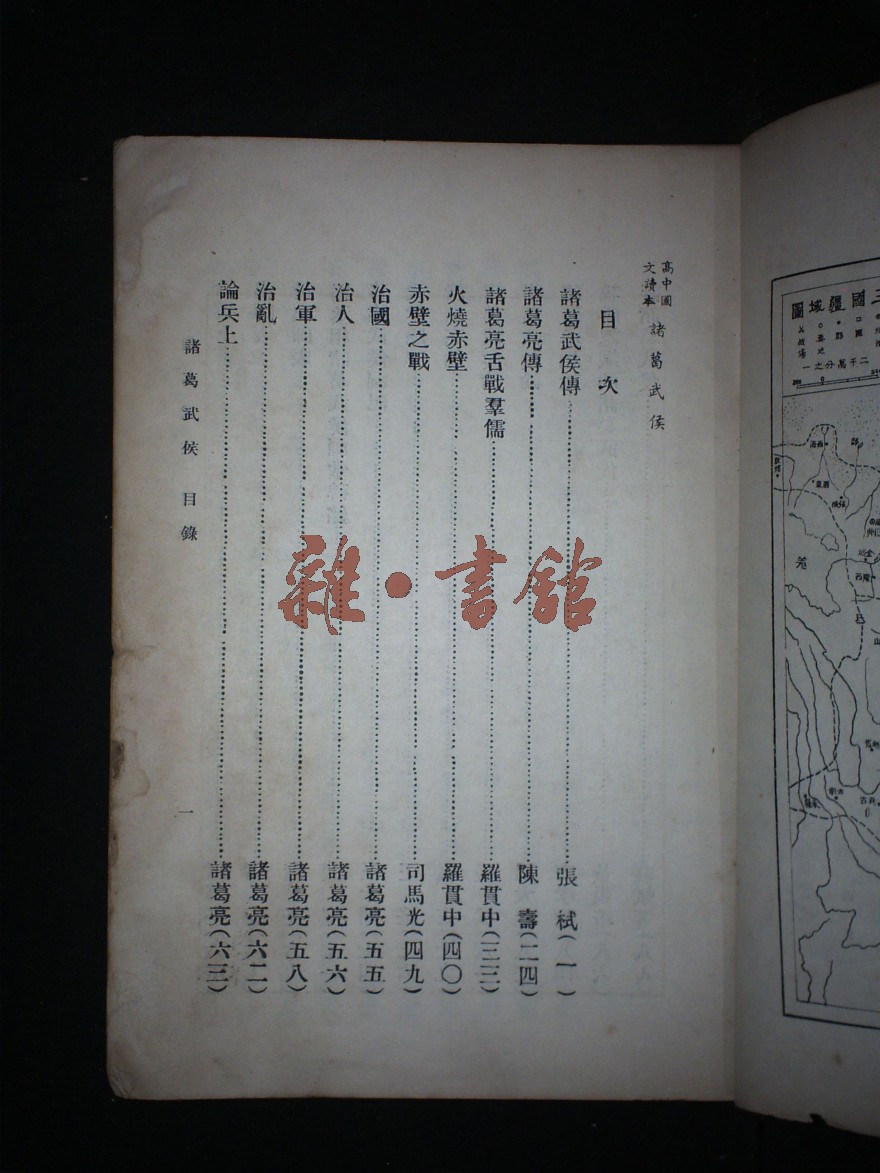 高中國
文讀本
諸葛武侯
目次
諸葛武侯傳……張栻(一)
諸葛亮傳……陳壽(二四)
諸葛亮舌戰羣儒……羅貫中(三三)
火燒赤壁……羅貫中(四〇)
赤壁之戰……司馬光(四九)
治國……諸葛亮(五五)
治人……諸葛亮(五六)
治軍……諸葛亮(五八)
治亂……諸葛亮(六二)
論兵上……諸葛亮(六三)
諸葛武侯 目錄
一
雜·書館
三國疆域圖
二千萬分之一